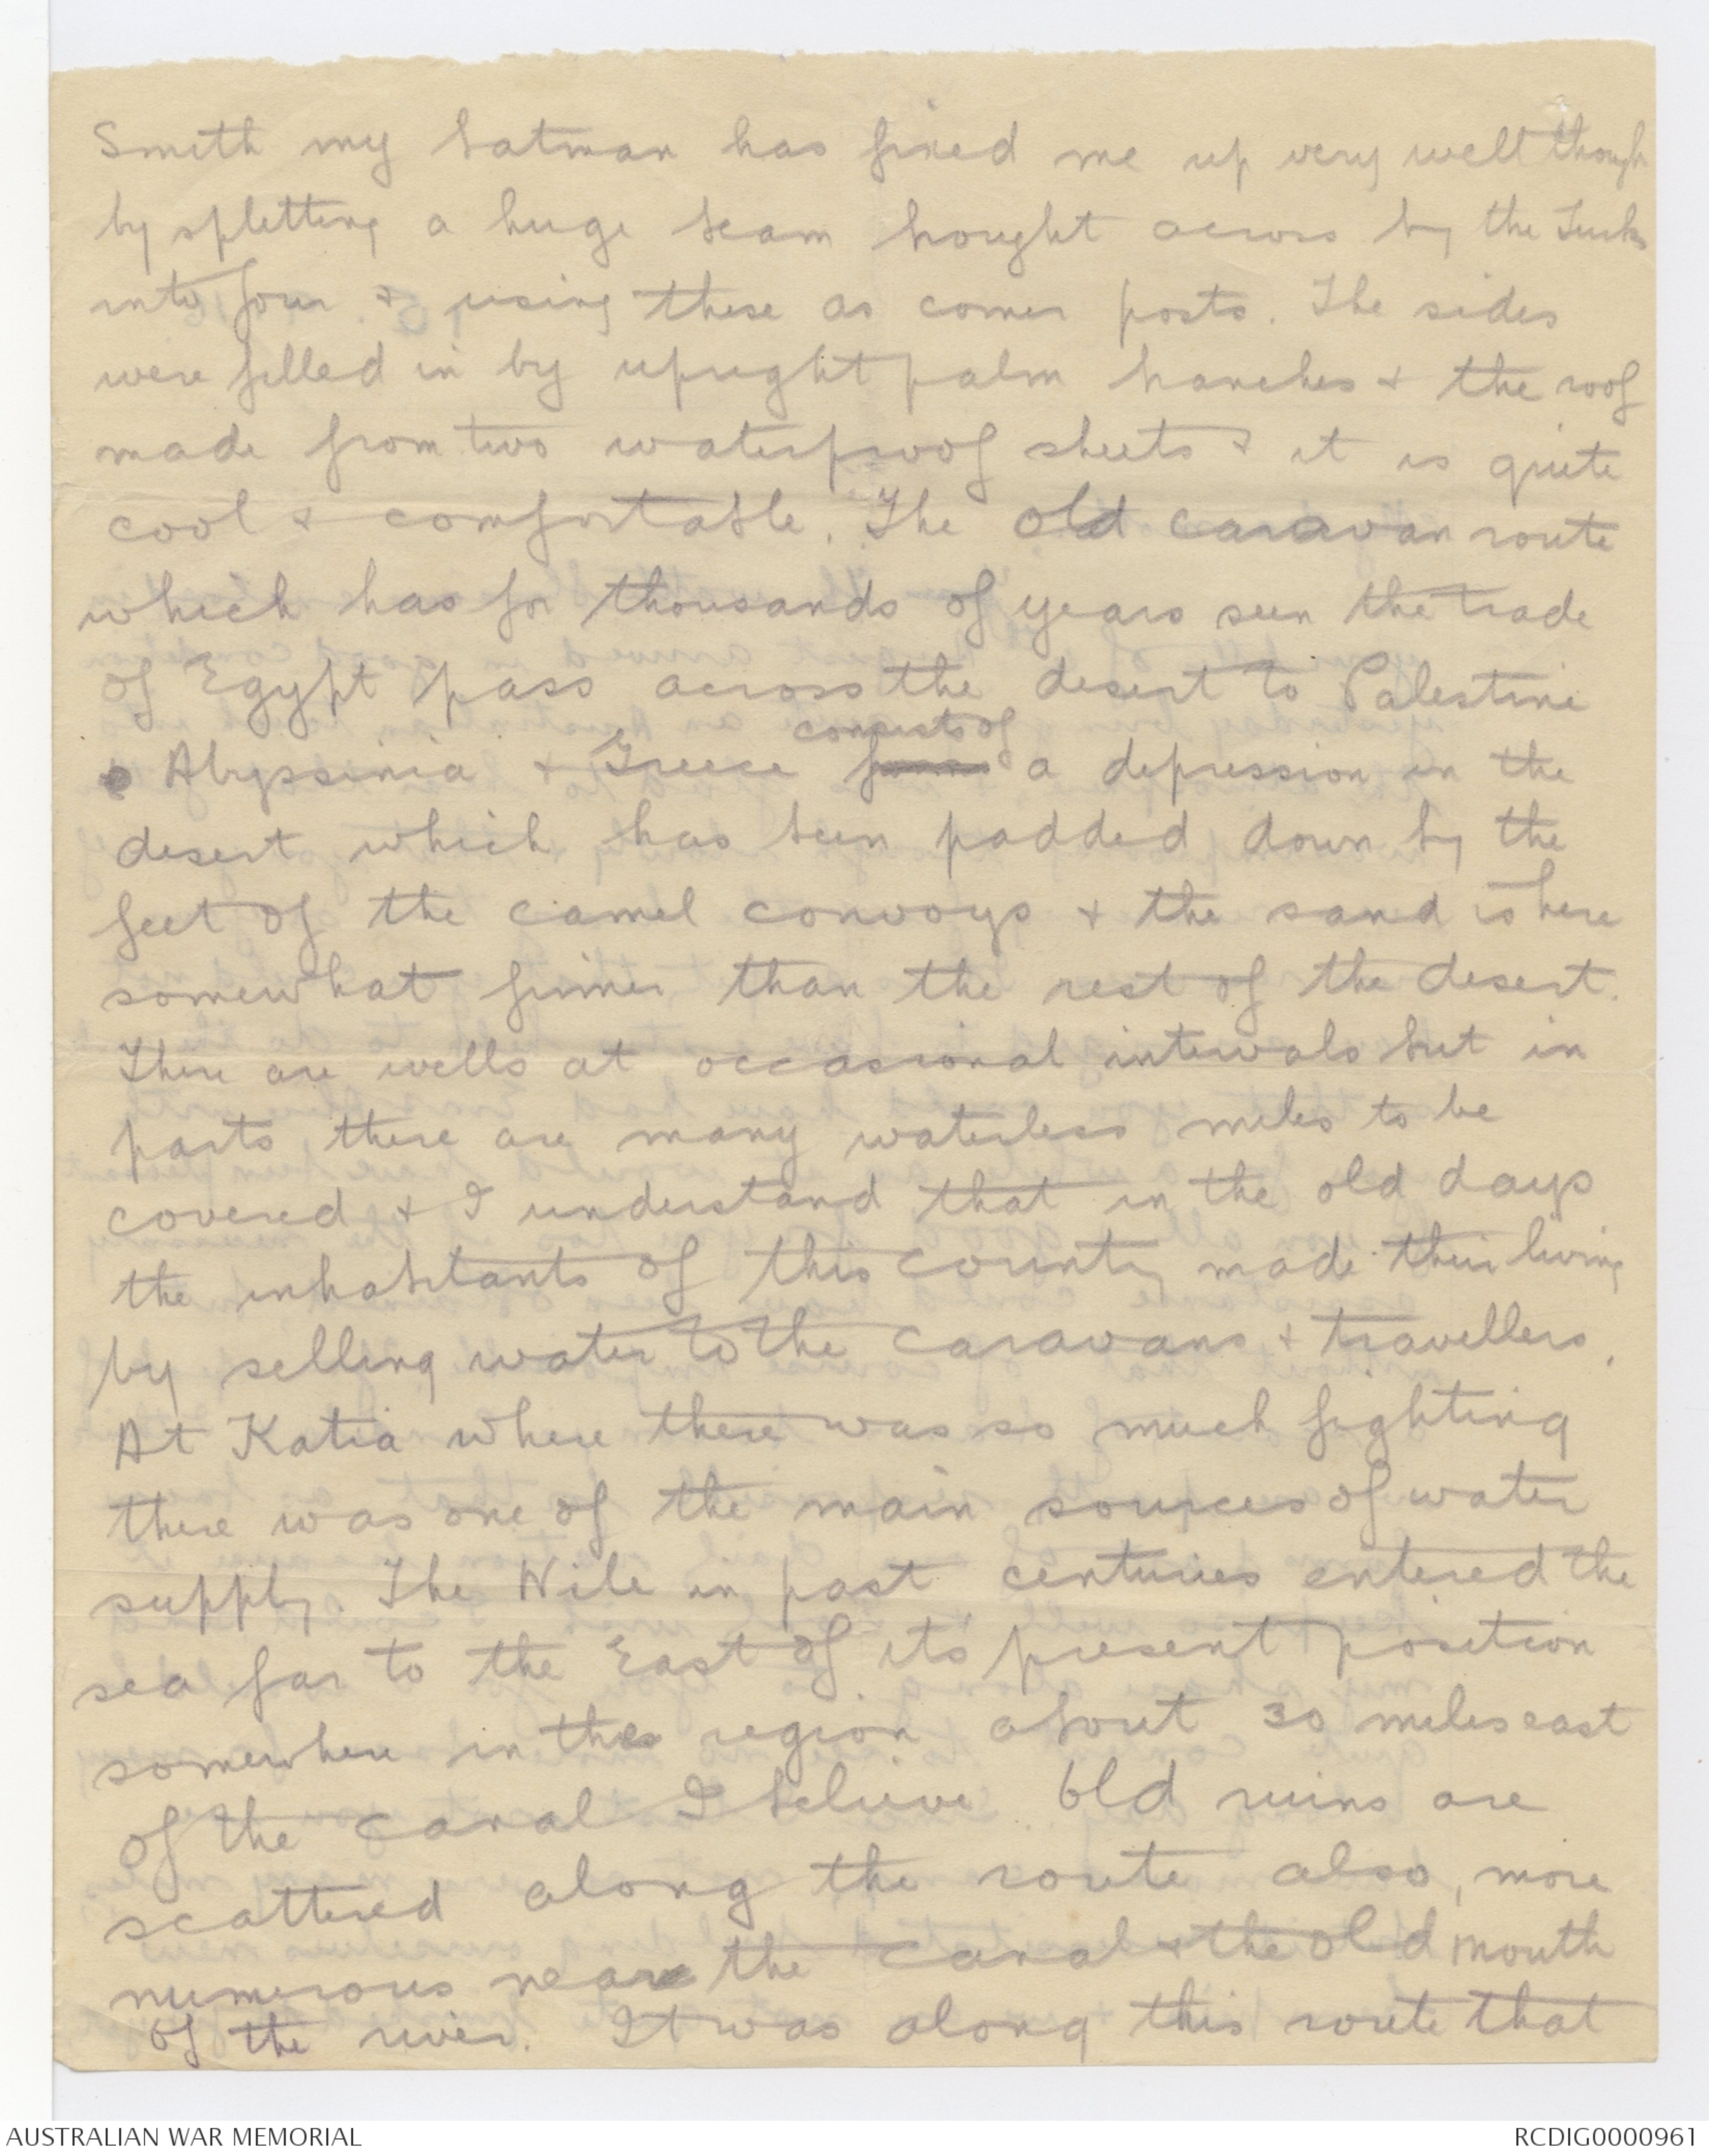 Smith my batman has fixed me up very well though
by splitting a huge beam brought across by the Turks
into four & using these as corner posts. The sides
were filled in by upright palm branches & the roof
made from two waterproof sheets & it is quite
cool & comfortable. The old caravan route
which has for thousands of years seen the trade
of Egypt pass across the desert to Palestine
consists of
Abyssinia & Greece a depression in the
desert which has been padded down by the
feet of the camel convoys & the sand is here
somewhat firmer than the rest of the desert.
There are wells at occasional intervals but in
parts there are many waterless miles to be
covered & I understand that in the old days
the inhabitants of this country made their living
by selling water to the caravans & travellers.
At Katia where there was so much fighting
there was one of the main sources of water
supply. The Nile in past centuries entered the
sea far to the East of its' present position
somewhere in the region about 30 miles east
of the canal I believe Old ruins are
scattered along the route also, more
numerous near the canal & the old mouth
of the river. It was along this route that
AUSTRALIAN WAR MEMORIAL
RCDIG0000961